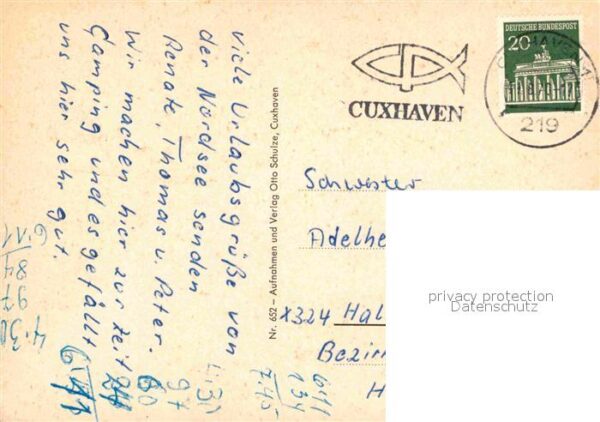 Viele Urlaubsgrüße von
der Nordsee senden
Renate, Thomas u. Peter.
Wir machen hier zur Zeit
Camping und es gefällt
uns hier sehr gut.
Nr. 652 – Aufnahmen und Verlag Otto Schulze, Cuxhaven
CUXHAVEN
DEUTSCHE BUNDESPOST
20
219
Schwester
Adelhe
X324 Hal
Bezir
H
privacy protection
Datenschutz
6.11
84
97
4.30
4.31
97
6.11
134
7.45